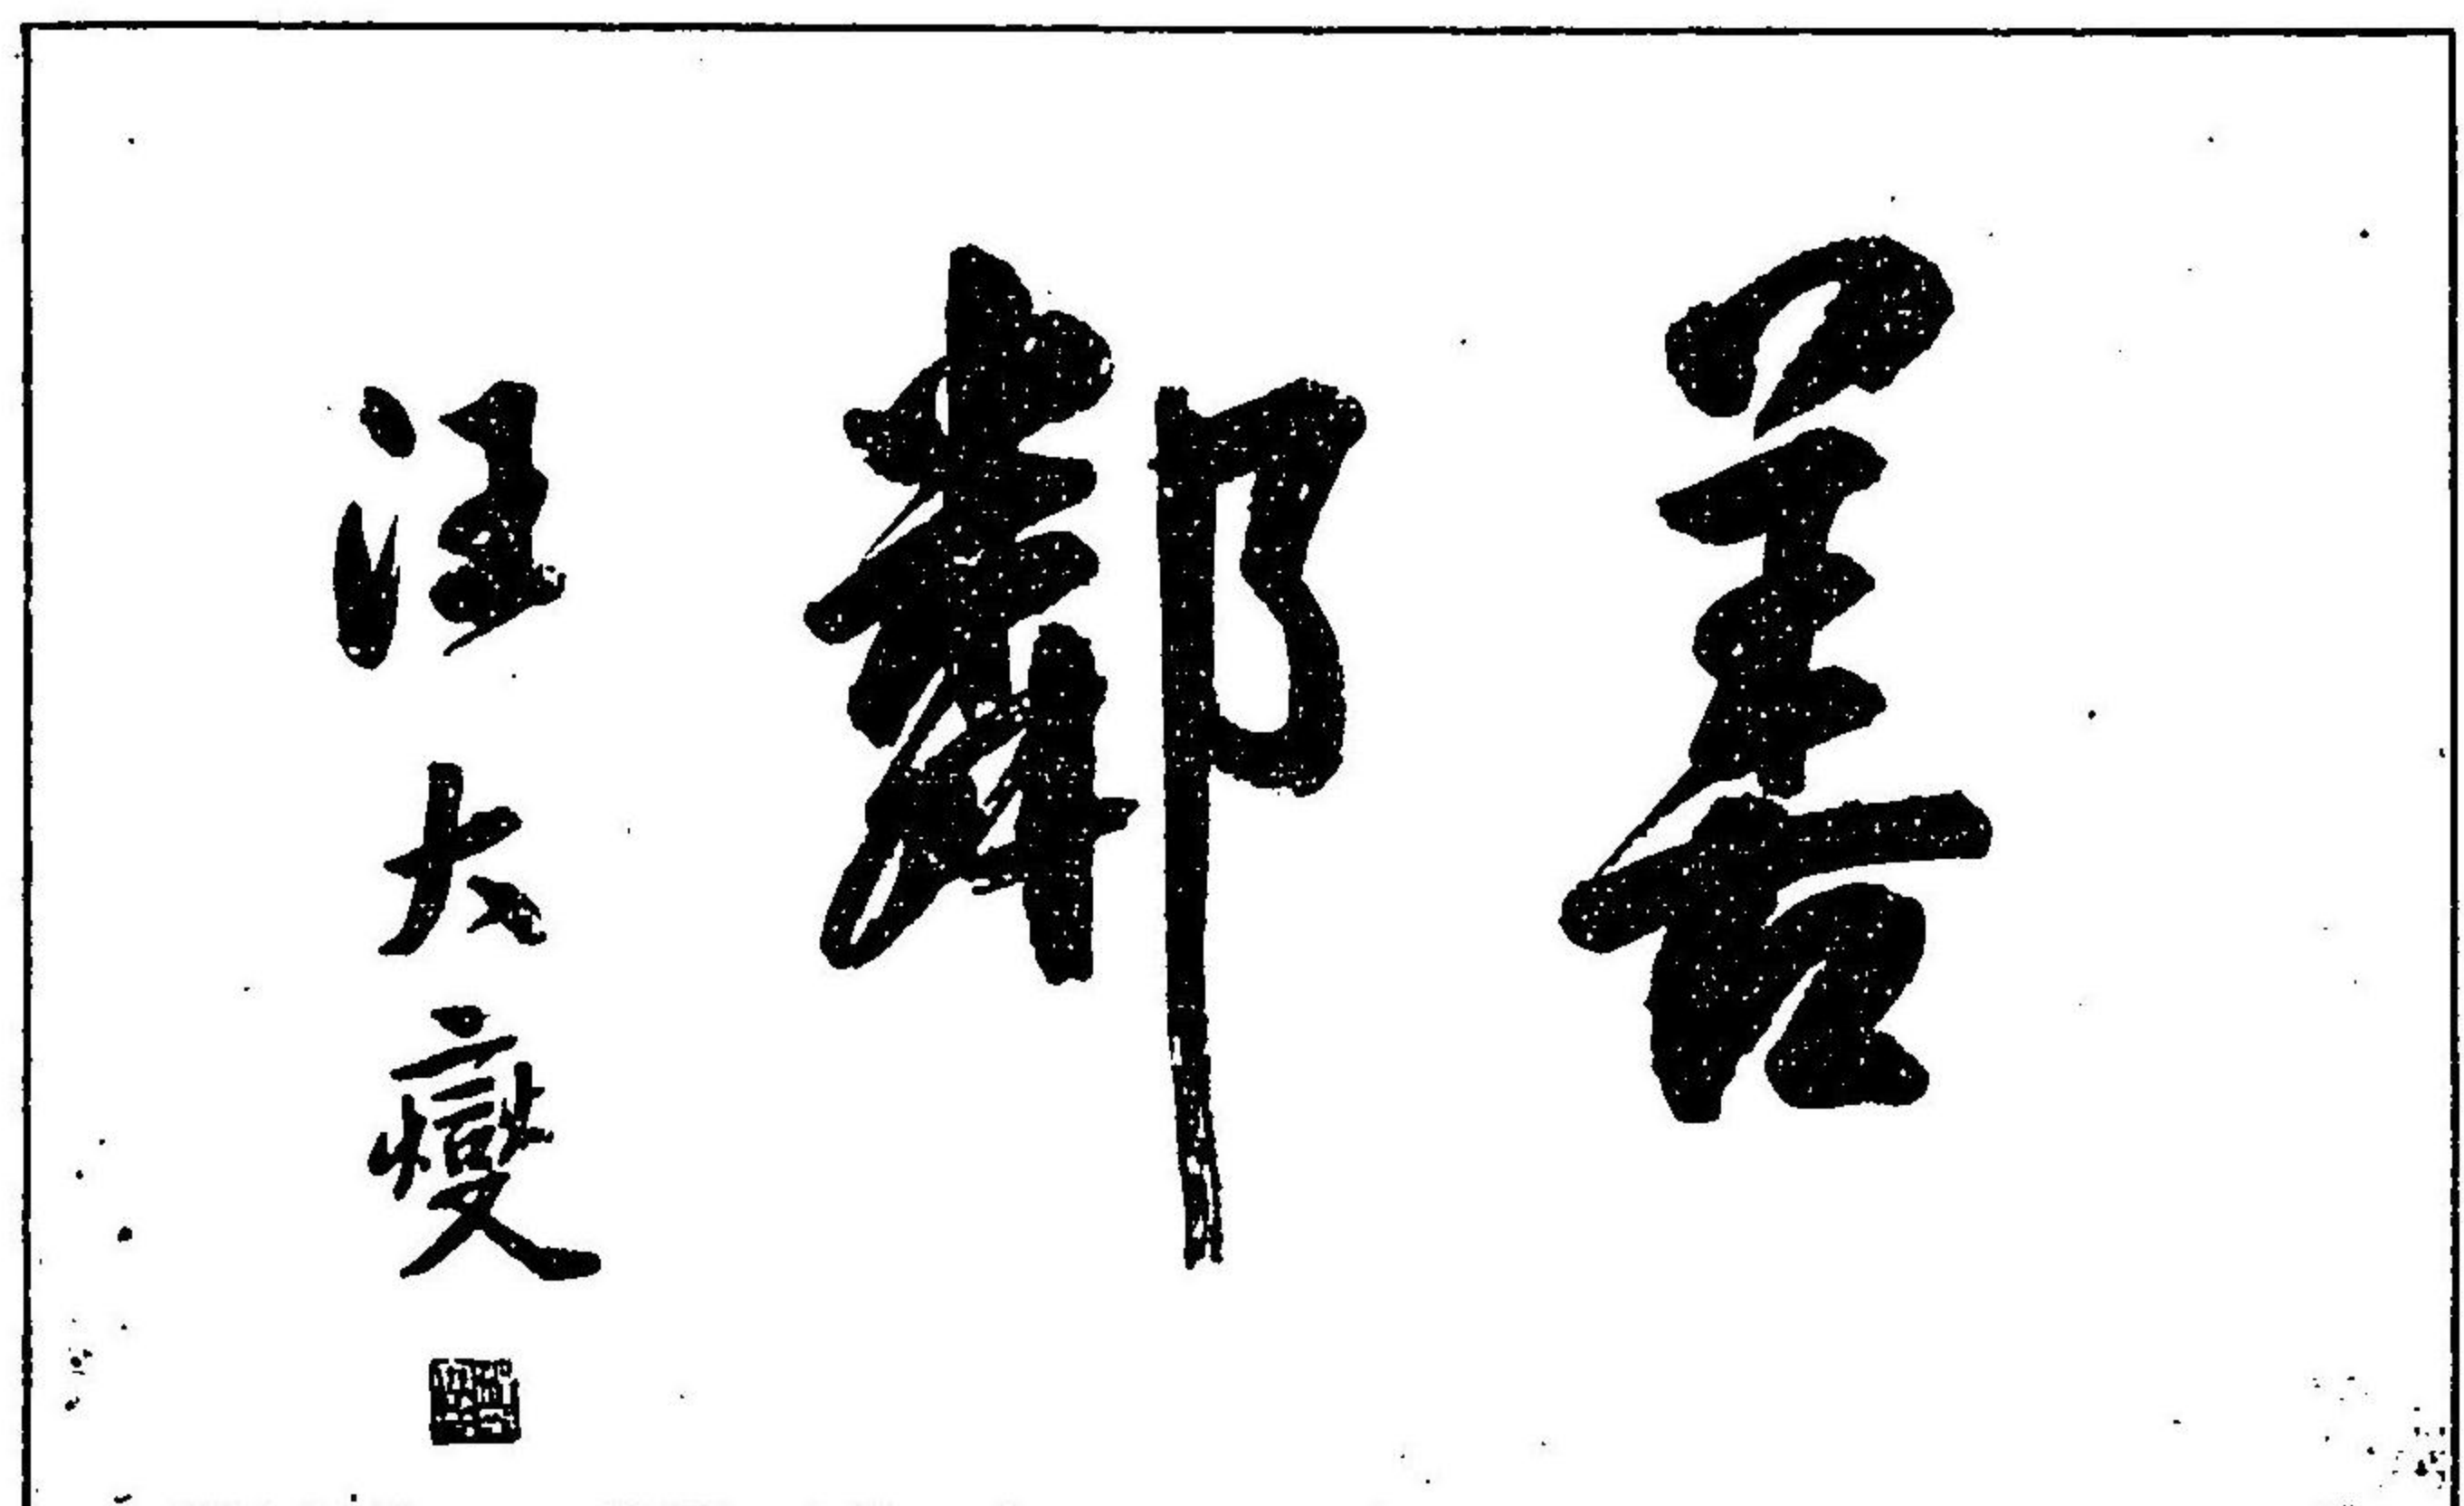 善鄰
汪大燮